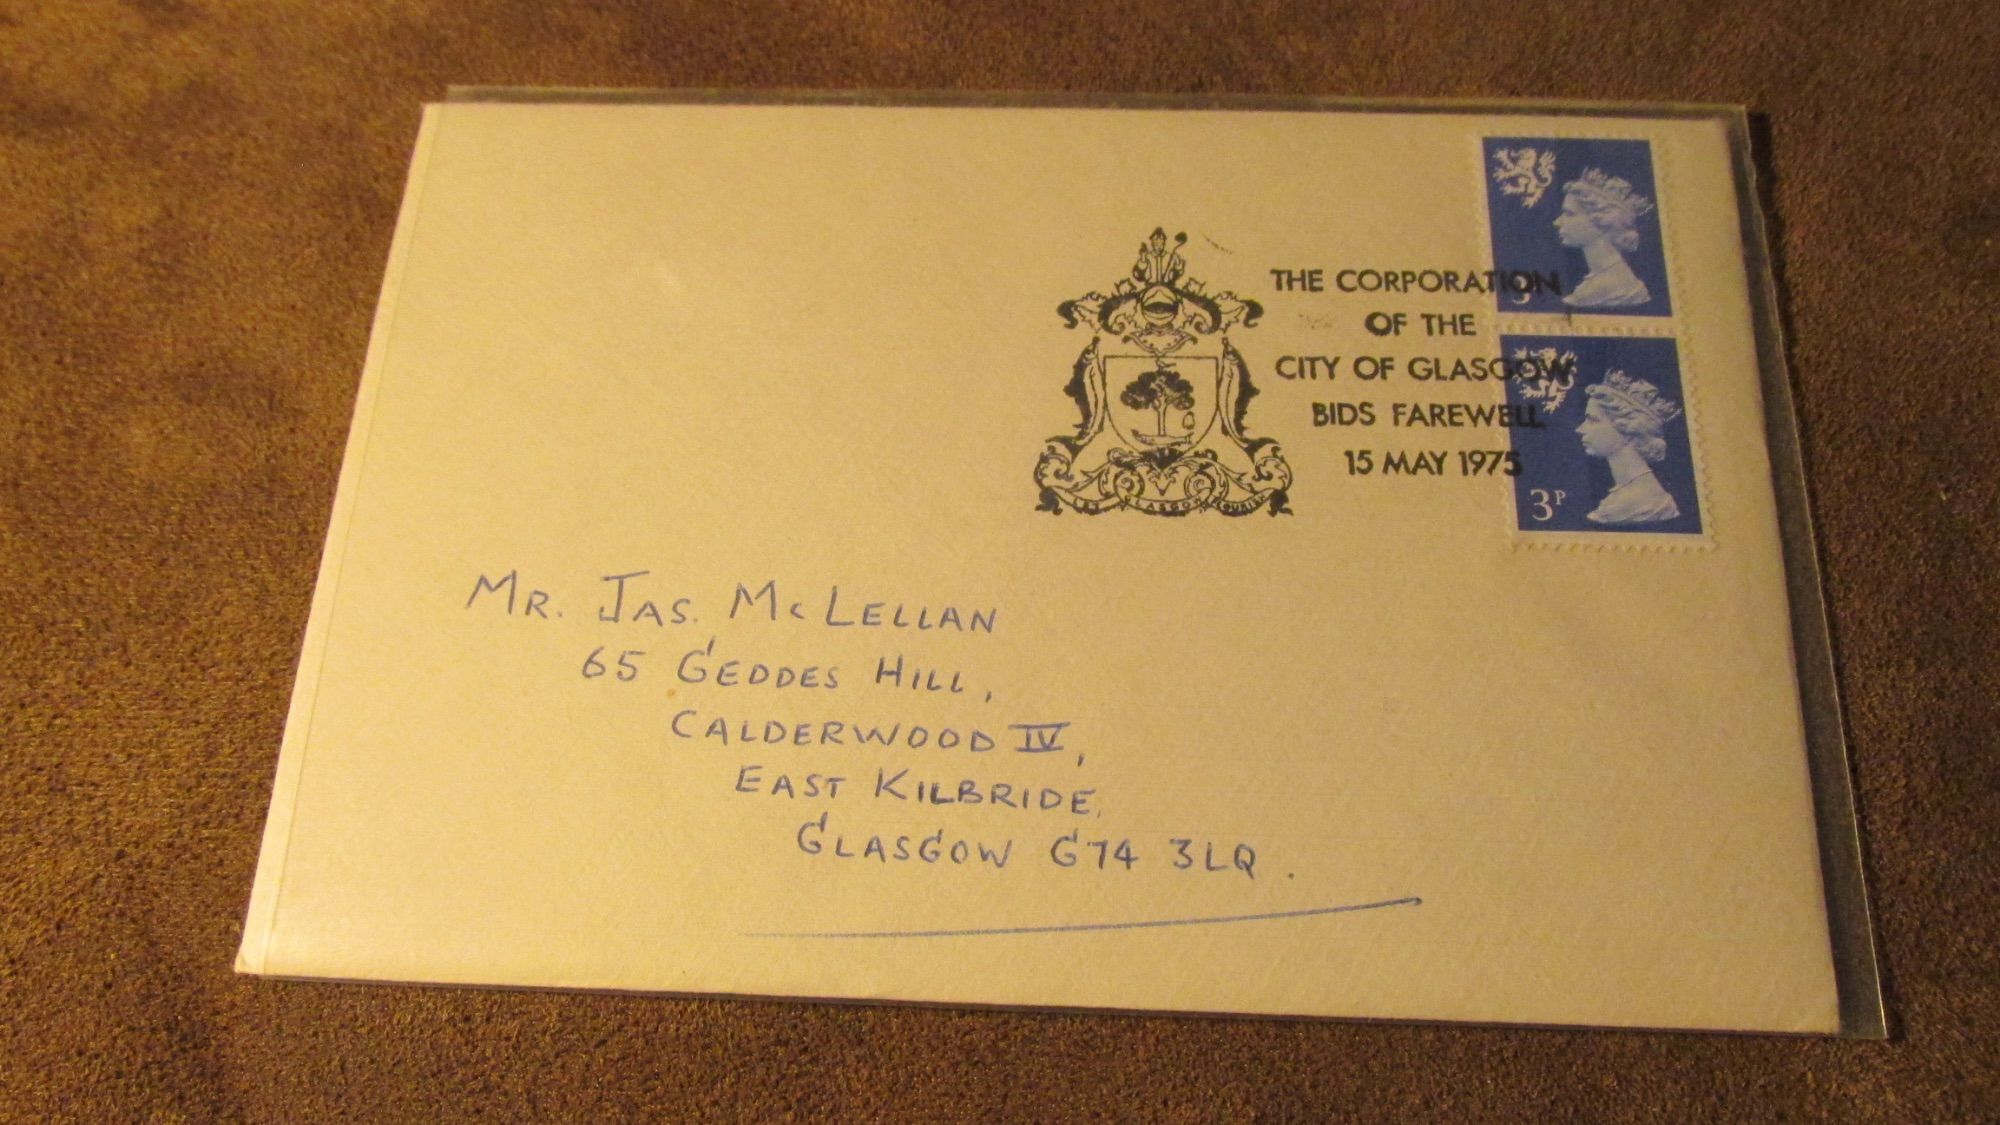 THE CORPORATION
OF THE
CITY OF GLASGOW
BIDS FAREWELL
15 MAY 1975
LET GLASGOW FLOURISH
3P
3P
MR. JAS. McLELLAN
65 GEDDES HILL,
CALDERWOOD IV,
EAST KILBRIDE,
GLASGOW G74 3LQ.